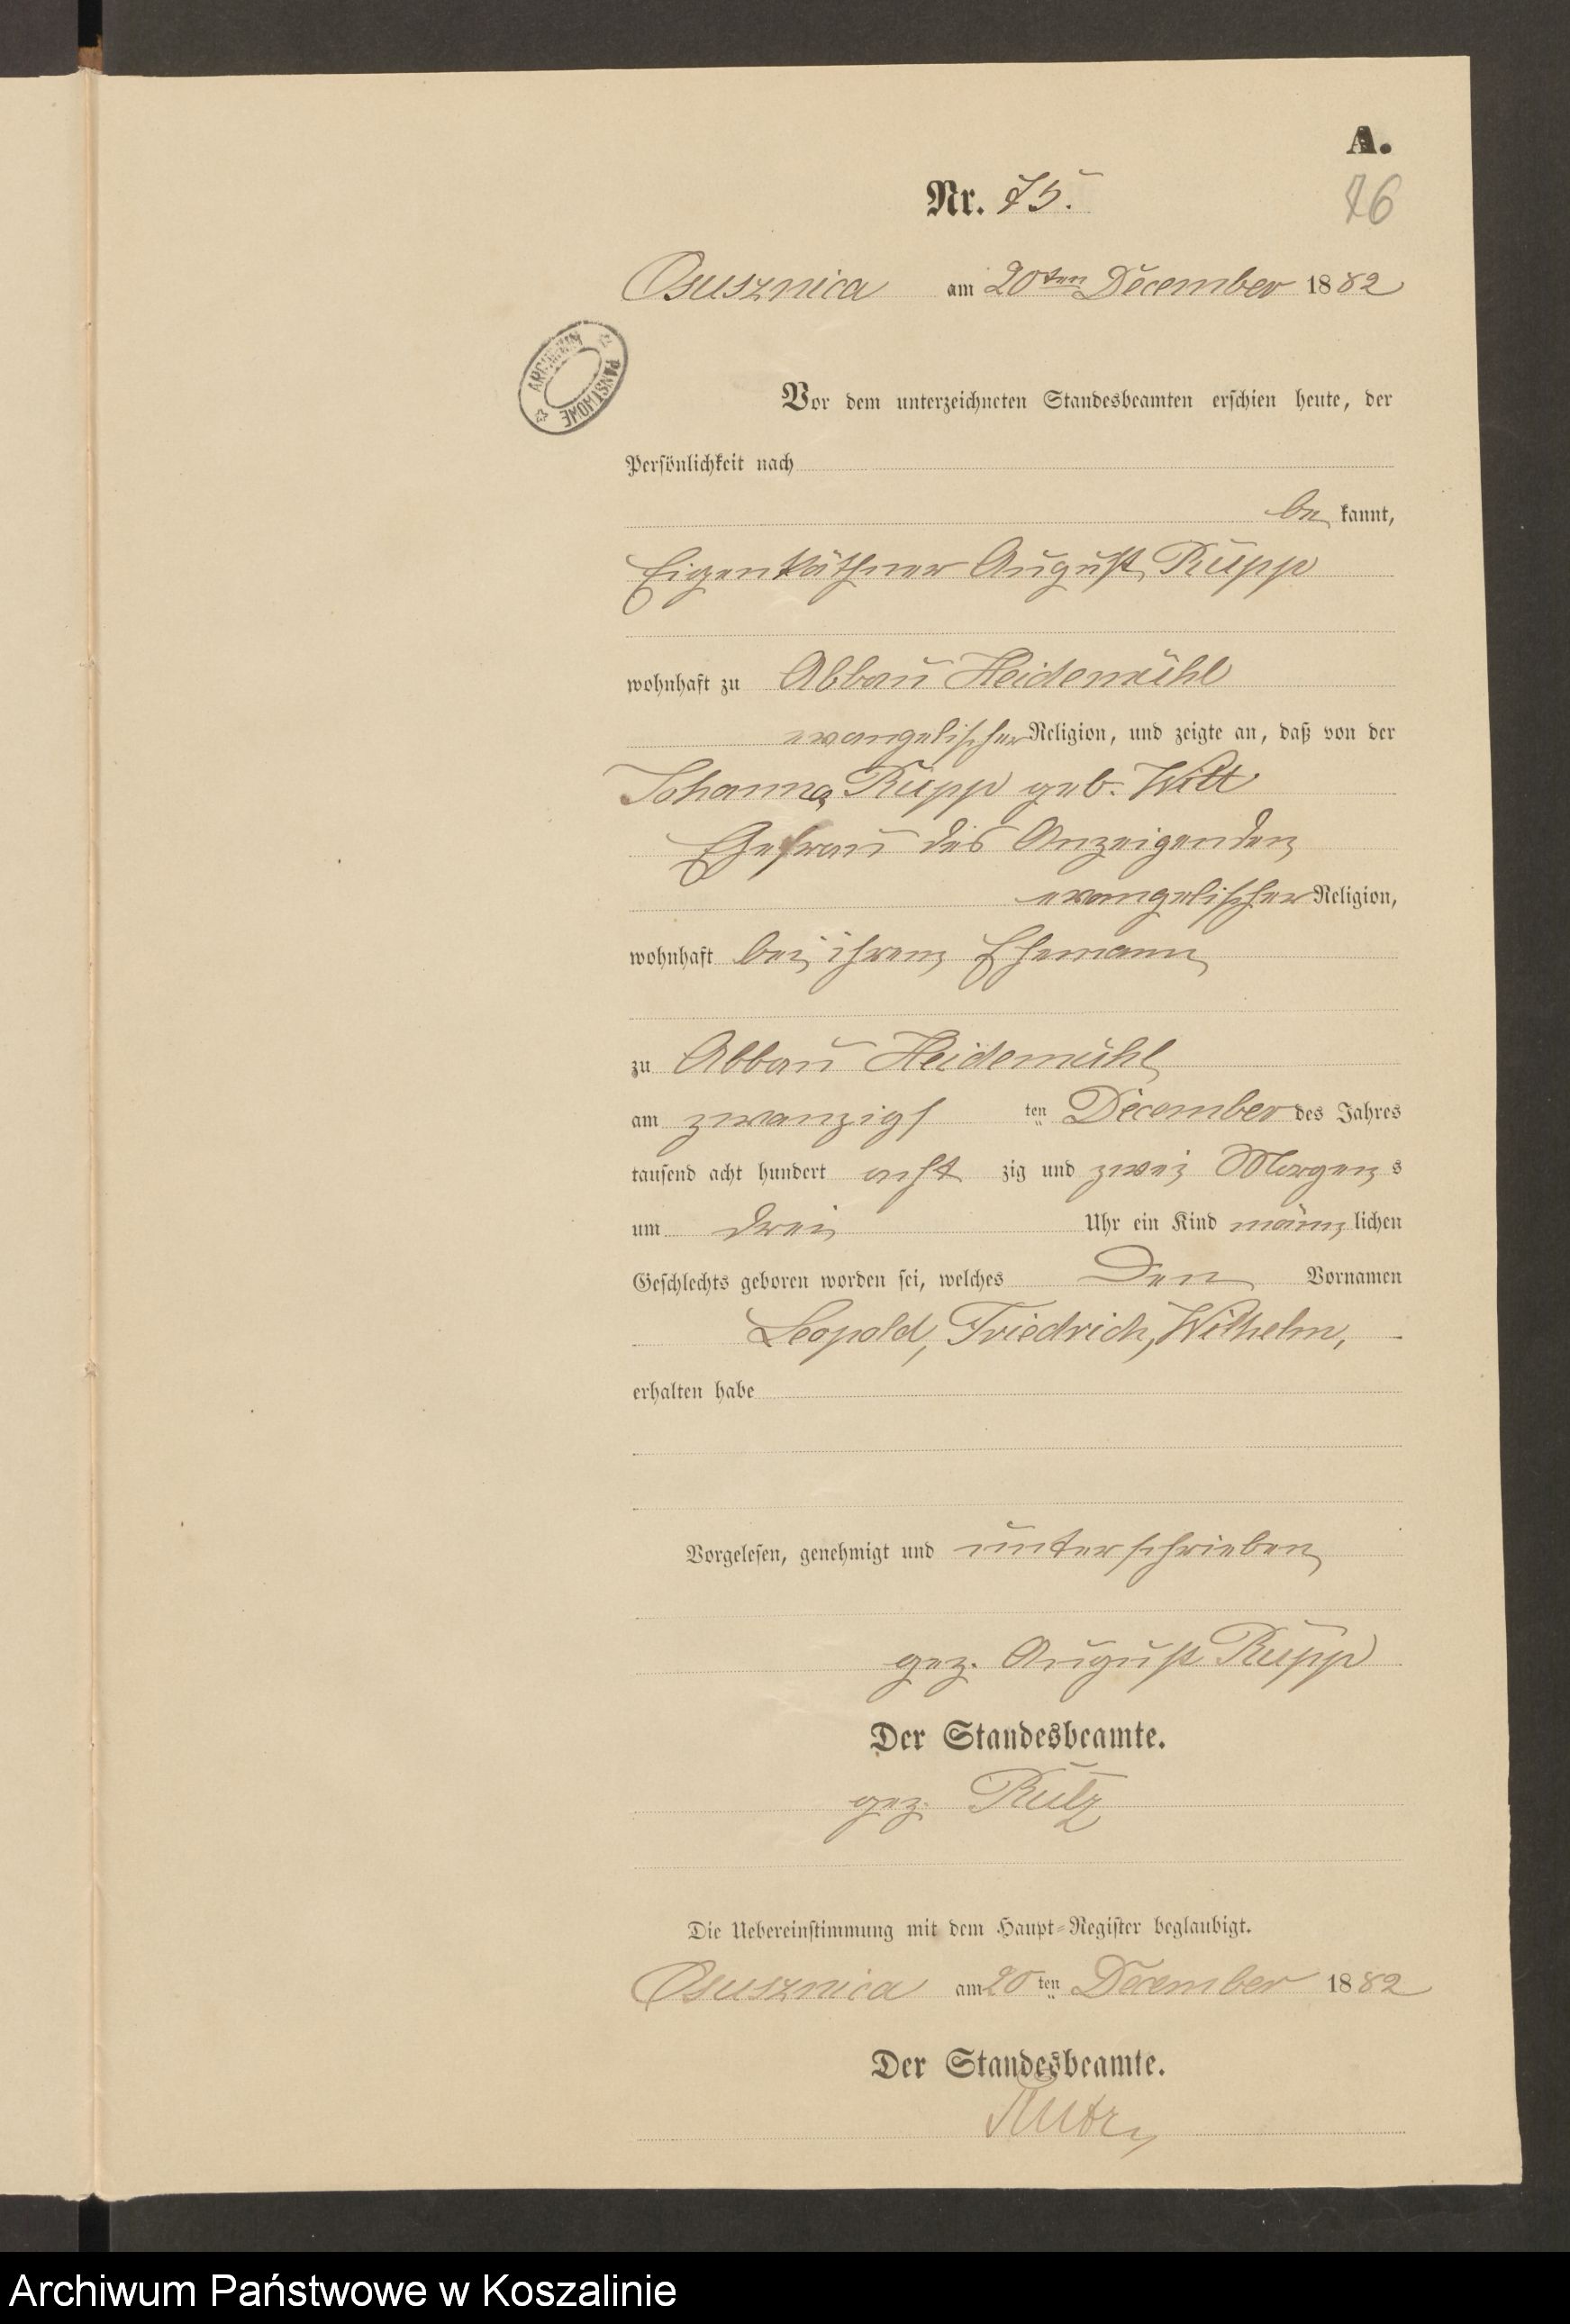 A.
Nr. 75.
76
Osusznica am 20ten December 1882
ARCHIWUM PAŃSTWOWE
Vor dem unterzeichneten Standesbeamten erschien heute, der
Persönlichkeit nach
be kannt,
Eigenkäthner August Rupp
wohnhaft zu Abbau Heidemühl
evangelischer Religion, und zeigte an, daß von der
Johanna Rupp geb. Witt
Ehefrau des Anzeigenden
evangelischer Religion,
wohnhaft bei ihrem Ehemann
zu Abbau Heidemühl
am zwanzigs ten December des Jahres
tausend acht hundert acht zig und zwei Morgens
um drei Uhr ein Kind männlichen
Geschlechts geboren worden sei, welches Den Vornamen
Leopold, Friedrich, Wilhelm,
erhalten habe
Vorgelesen, genehmigt und unterschrieben
gez. August Rupp
Der Standesbeamte.
gez. Rutz
Die Uebereinstimmung mit dem Haupt-Register beglaubigt.
Osusznica am 20ten December 1882
Der Standesbeamte.
Rutz
Archiwum Państwowe w Koszalinie